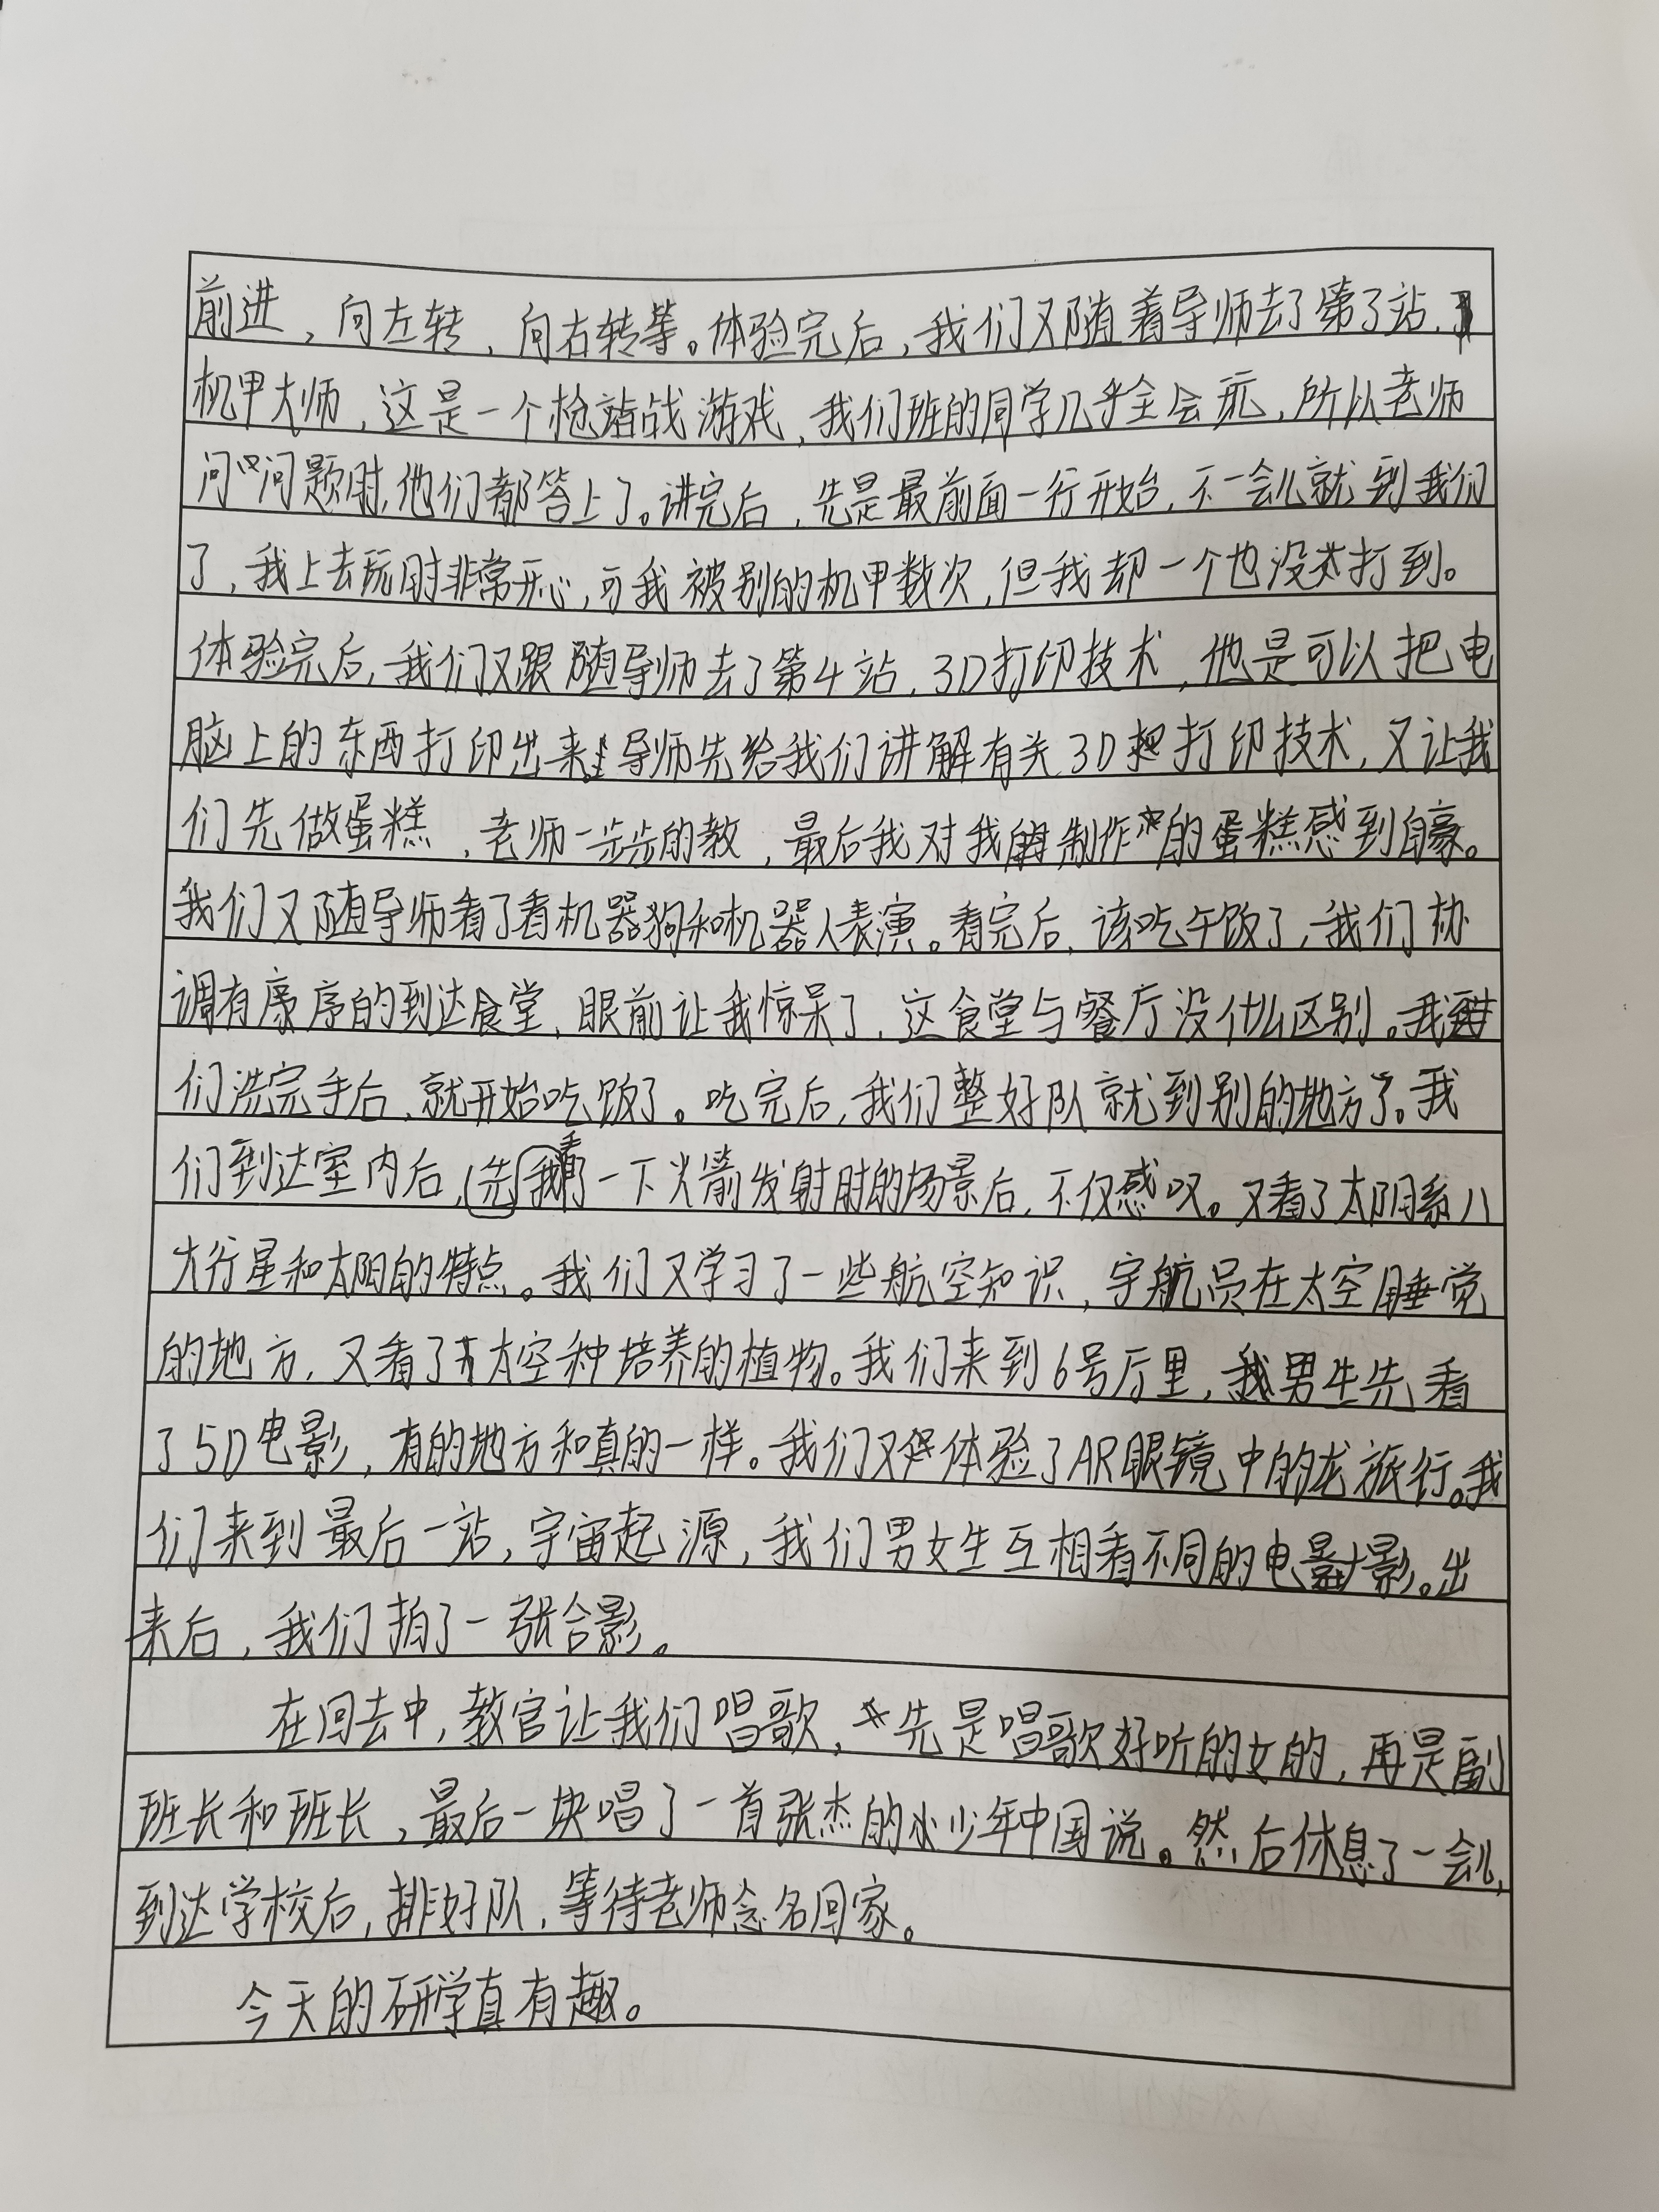 前进，向左转，向右转等。体验完后，我们又随着导师去了第3站，
机甲大师，这是一个枪战游戏，我们班的同学几乎全会玩，所以老师
问问题时，他们都答上了。讲完后，先是最前面一行开始，不一会儿就到我们
了，我上去玩时非常开心，可我被别的机甲数次，但我却一个也没打到。
体验完后，我们又跟随导师去了第4站，3D打印技术，他是可以把电
脑上的东西打印出来。导师先给我们讲解有关3D打印技术，又让我
们先做蛋糕，老师一步步的教，最后我对我制作的蛋糕感到自豪。
我们又随导师看了看机器狗和机器人表演。看完后，该吃午饭了，我们协
调有序的到达食堂，眼前让我惊呆了，这食堂与餐厅没什么区别。我
们洗完手后，就开始吃饭了。吃完后，我们整好队就到别的地方了。我
们到达室内后，先我看了一下火箭发射时的场景后，不仅感叹。又看了太阳系八
大行星和太阳的特点。我们又学习了一些航空知识，宇航员在太空睡觉
的地方，又看了太空种培养的植物。我们来到6号厅里，我男生先看
了5D电影，有的地方和真的一样。我们又体验了AR眼镜中的龙旅行。我
们来到最后一站，宇宙起源，我们男女生互相看不同的电影。出
来后，我们拍了一张合影。
在回去中，教官让我们唱歌，先是唱歌好听的女的，再是副
班长和班长，最后一块唱了一首张杰的少年中国说。然后休息了一会儿，
到达学校后，排好队，等待老师念名回家。
今天的研学真有趣。